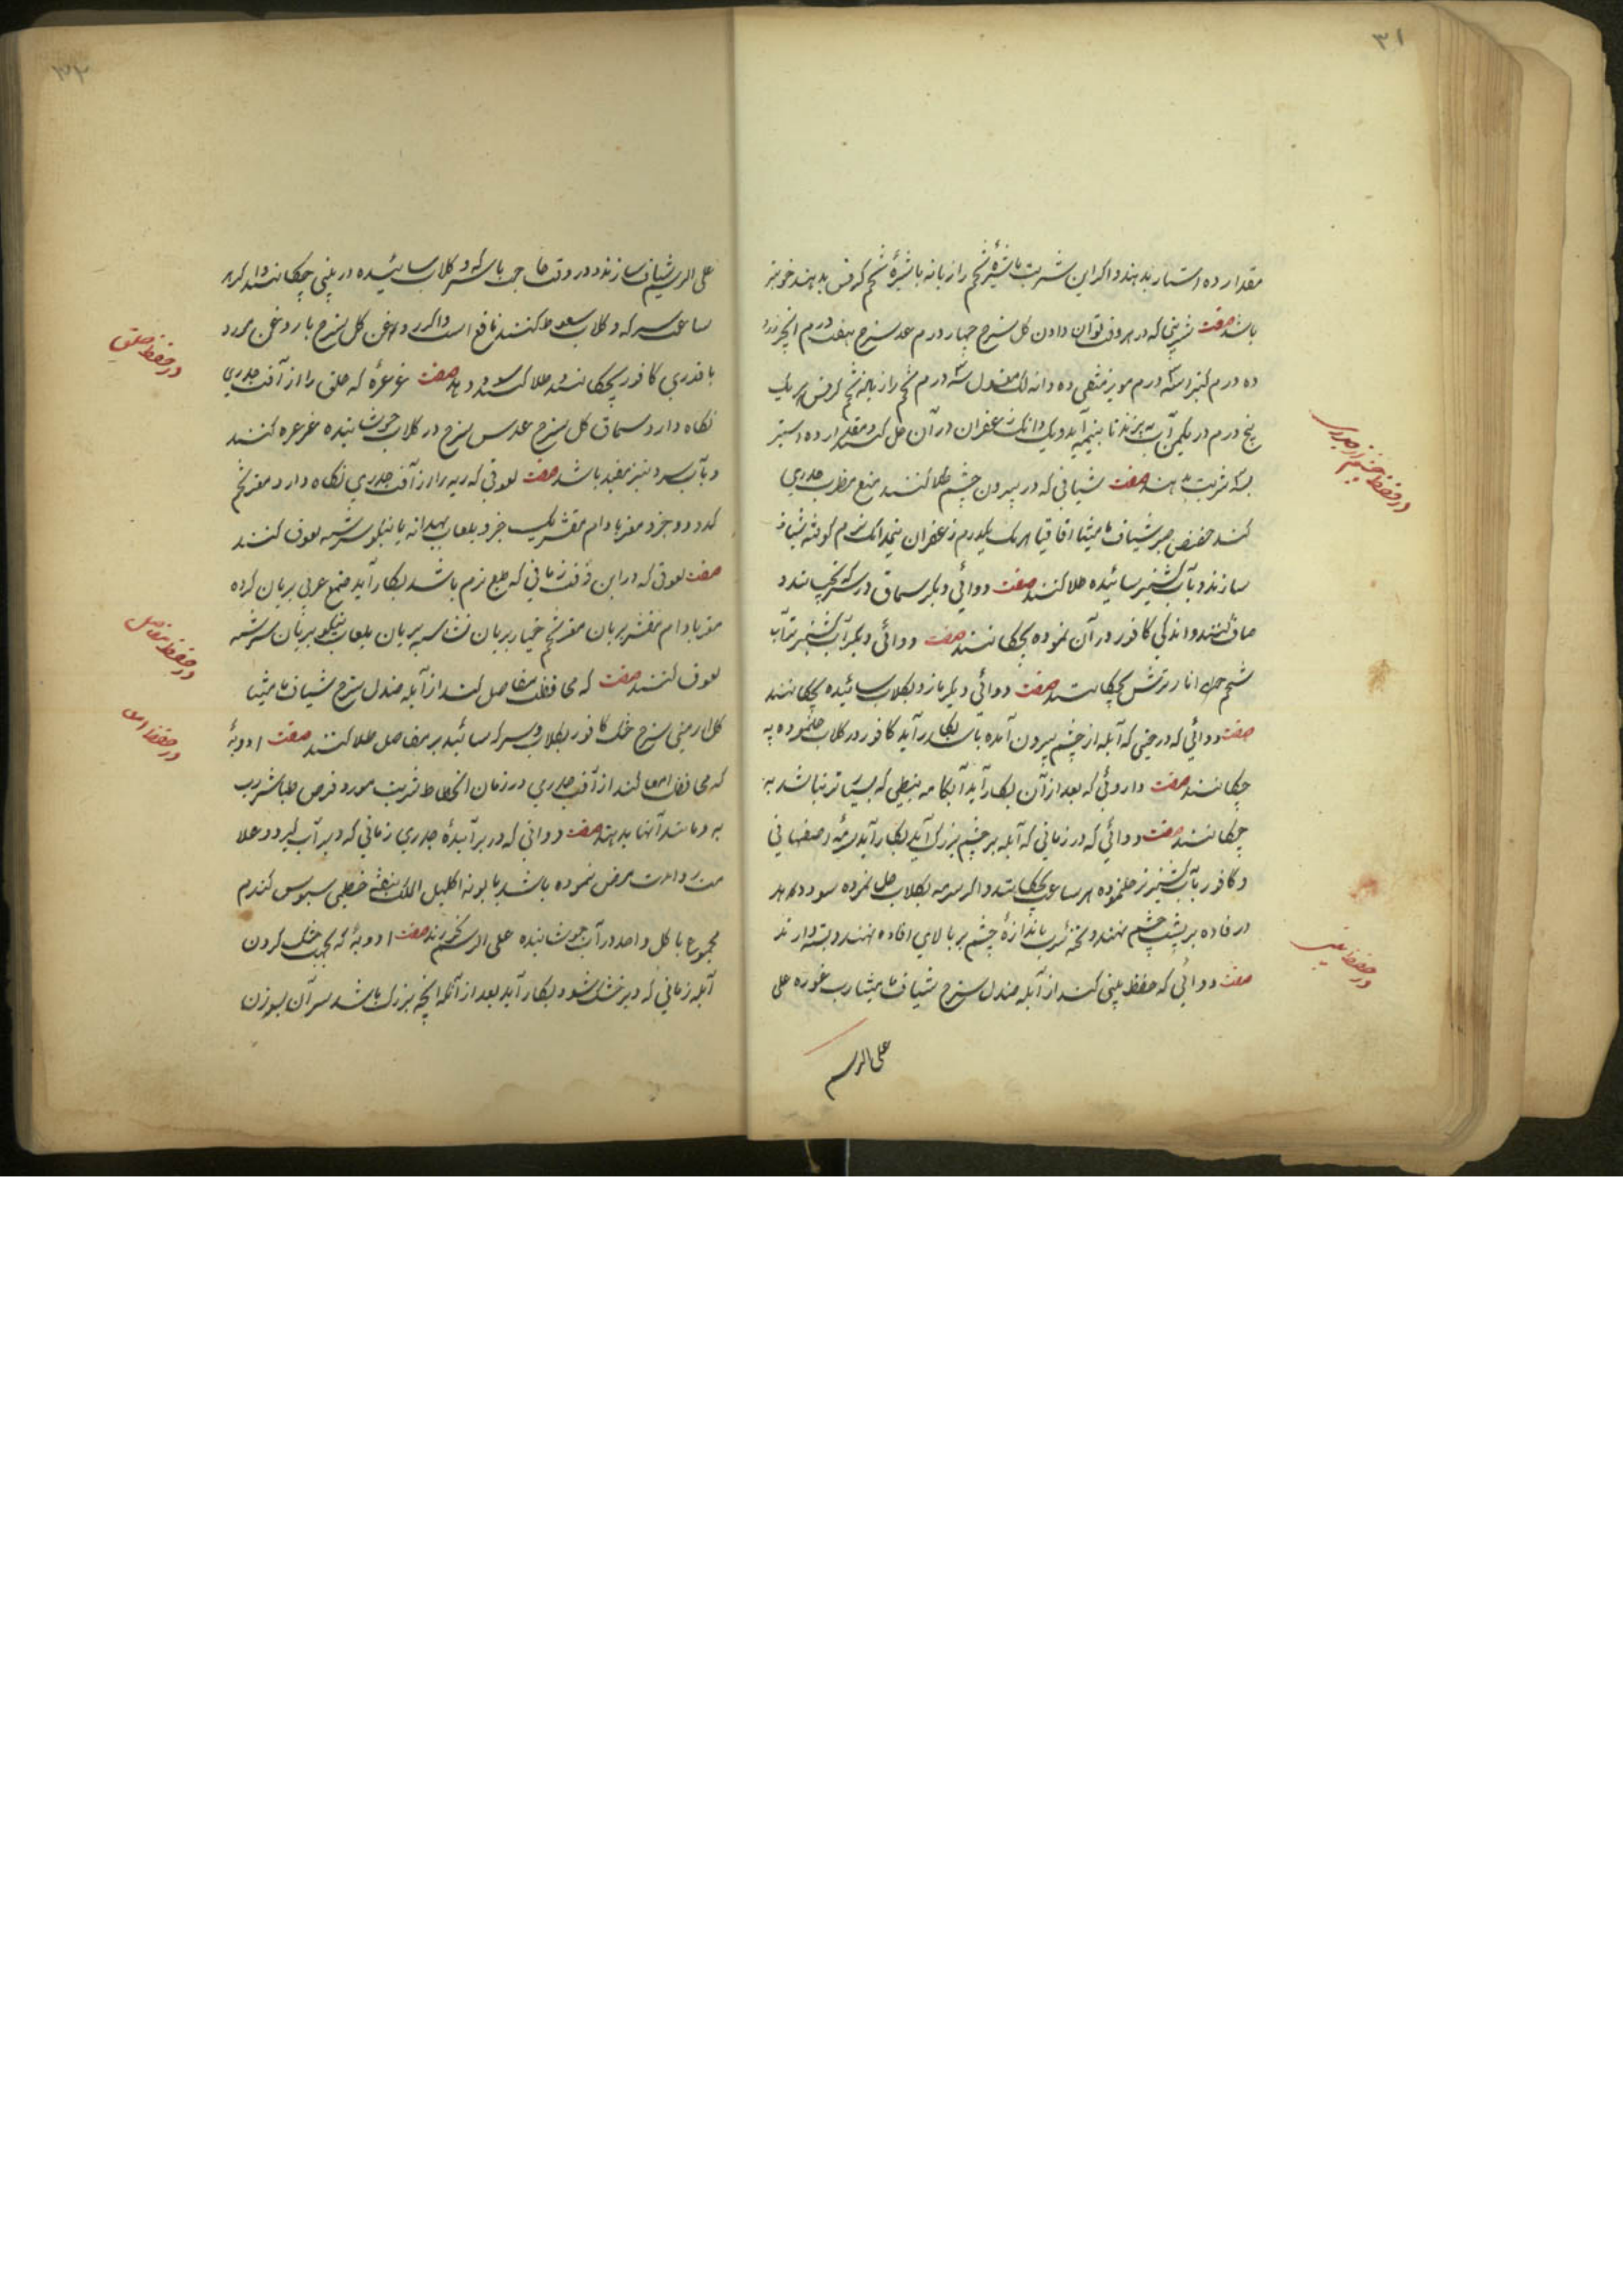 ۳۱
مقدار ده استار بدهند و اگر این شربت با شیرهٔ تخم رازیانه با شیرهٔ تخم کرفس بدهند خوبتر
باشد صفت شربتی که در هر وقت توان دادن گل سرخ چهار درم عدس سرخ هفت درم انجیر زرد
ده درم کتیرا سه درم مویز منقی ده دانه لک مغسول سه درم تخم رازیانه تخم کرفس هر یک
پنج درم در یکمن آب بپزند تا بنیمه آید و یک دانک زعفران در آن حل کنند و مقدار ده استیر
بسه شربت بدهند صفت شیافی که در بیرون چشم طلا کنند منع مضرت جدری
کند حضض صبر شیاف مامیثا اقاقیا هر یک یکدرم زعفران نیمدانک نرم کوفته شیاف
سازند و بآب کشنیز سائیده طلا کنند صفت دوائی دیگر سماق در سرکه بخیسانند و
صاف کنند و اندکی کافور در آن نموده بچکانند صفت دوائی دیگر آب کشنیز تر آب
شحم انار ترش بچکانند صفت دوائی دیگر مازو بکلاب سائیده بچکانند
صفت دوائی که در حینی که آبله از چشم بیرون آمده باشد بکار آید کافور در کلاب حلنموده به
چکانند صفت داروئی که بعد از آن بکار آید آبکامه نبطی که بسیار ترش نباشد به
چکانند صفت دوائی که در زمانی که آبله بر چشم بزرک آید بکار آید سرمهٔ اصفهانی
و کافور بآب کشنیز تر حلنموده هر ساعت بچکانند و اگر سرمه بکلاب حل نموده سود دهد
در فاده بر پشت چشم نهند و تختهٔ سرب باندازهٔ چشم بر بالای رفاده نهند و بسته دارند
صفت دوائی که حفظ بینی کند از آبله صندل سرخ شیاف مامیثا رب غوره علی
علی الرسم
در حفظ چشم از جدری
در حفظ بینی
علی الرسم شیاف سازند و در وقت حاجت با سرکه و کلاب سائیده در بینی چکانند و اگر هر
ساعت سرکه و کلاب سعوط کنند نافع است و اگر روغن گل سرخ یا روغن مورد
با قدری کافور بچکانند و طلا کنند سود دهد صفت غرغرهٔ که حلق را از آفت جدری
نکاه دارد سماق کل سرخ عدس سرخ در کلاب جوشانیده غرغره کنند
و بآب سرد نیز مفید باشد صفت لعوقی که ریه را از آفت جدری نکاه دارد مغز تخم
کدو دو جزو مغز بادام مقشر یک جزو بلعاب بهدانه یا بنکو سرشته لعوق کنند
صفت لعوقی که در این وقت زمانی که طبع نرم باشد بکار آید صمغ عربی بریان کرده
مغز بادام مقشر بریان مغز تخم خیار بریان نشاسته بریان بلعاب بنکو بریان سرشته
لعوق کنند صفت که محافظت مفاصل کند از آبله صندل سرخ شیاف مامیثا
گل ارمنی سرخ خشک کافور بکلاب و سرکه سائیده بر مفاصل طلا کنند صفت ادویهٔ
که محافظت امعا کند از آفت جدری در زمان انحطاط شربت مورد قرص طباشیر رب
به و مانند آنها بدهند صفت دوائی که در بر آیندهٔ جدری زمانی که دیر آب گیرد و علا
مرض نموده باشد بابونه اکلیل الملک بنفشه خطمی سبوس کندم
مجموع یا کل واحد در آب جوشانیده علی الرسم بخور کنند صفت ادویهٔ که بجهت خشک کردن
آبله زمانی که دیر خشک شود بکار آید بعد از آنکه آنچه بزرک باشد سر آن بسوزن
در حفظ حلق
در حفظ مفاصل
در حفظ امعا